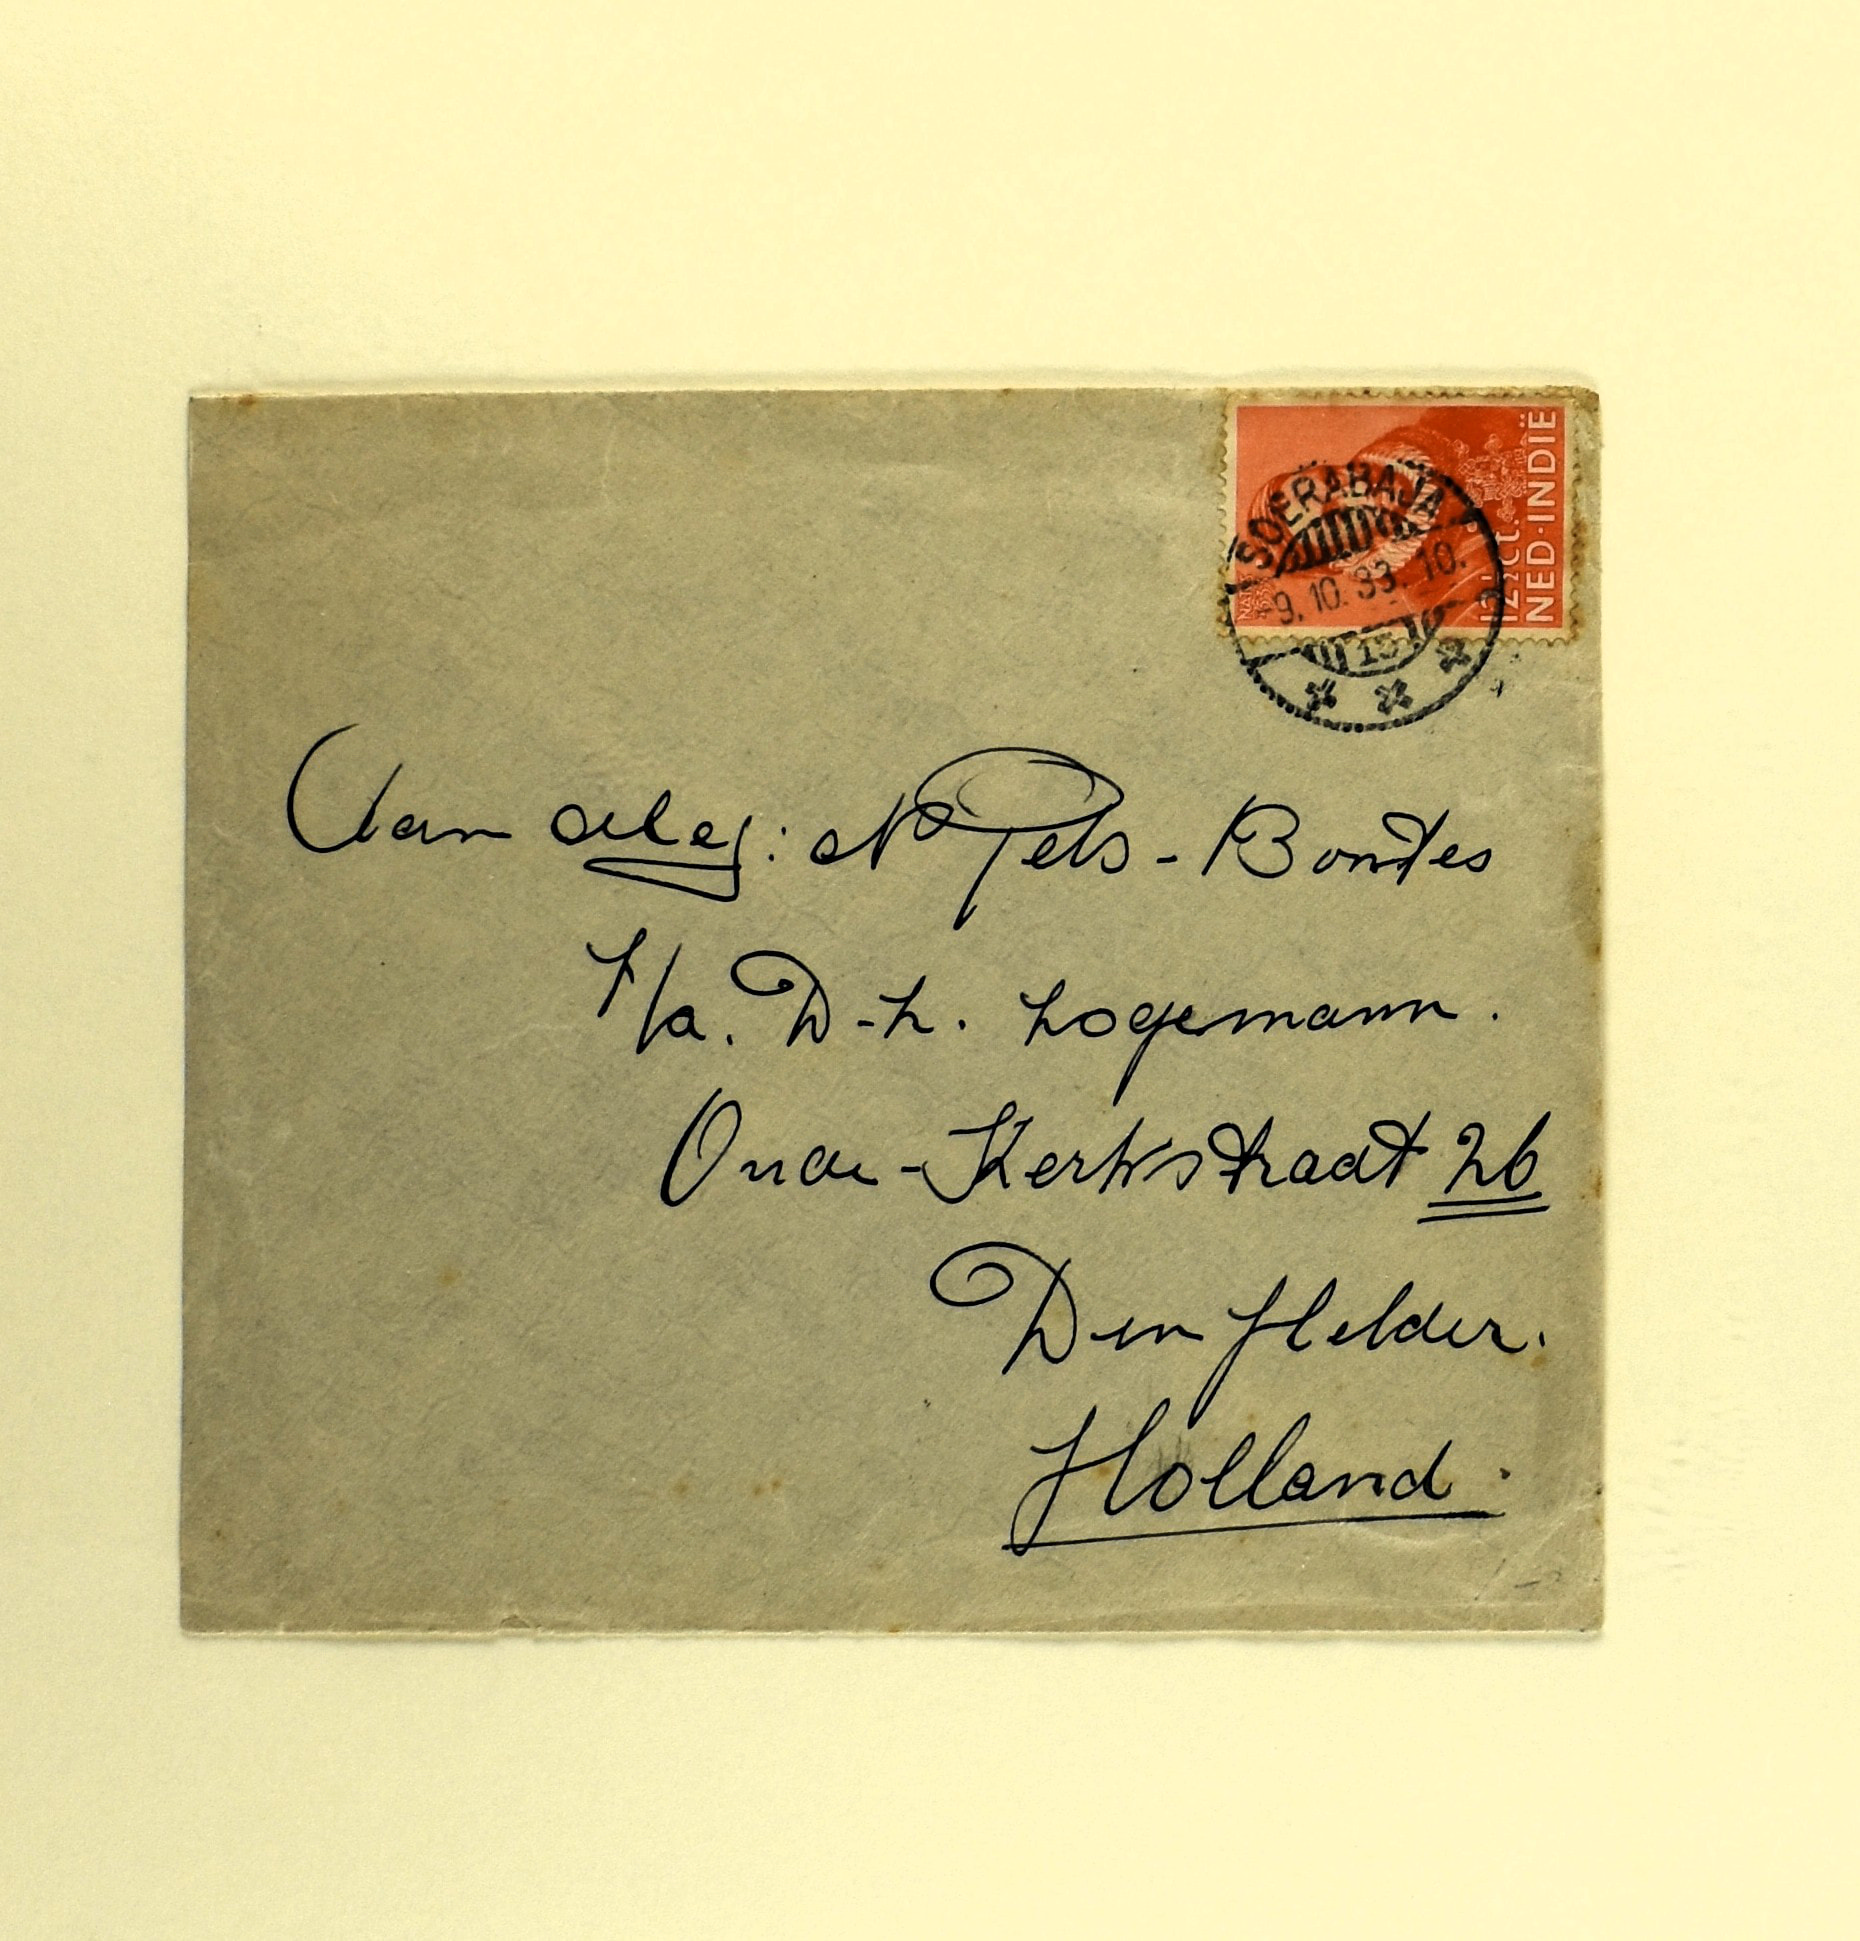 NED·INDIË
12½ ct.
SOERABAJA
-9.10.33.10.
13
Aan : N Pels-Bontes
P/a. D-L. Logemann.
Oude-Kerkstraat 26
Den Helder.
Holland.